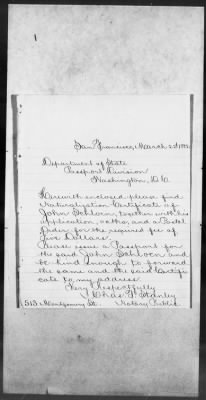 San Francisco, March 2d 189
Department of State
Passport Division
Washington, D.C.
Herewith enclosed please find
Naturalization Certificate of
John Schloen, together with his
application, oaths, and a Postal
Order for the required fee of
Five Dollars.
Please issue a Passport for
the said John Schloen and
be kind enough to forward
the same and the said Certifi
cate to my address.
Very Respectfully
Chas. T. Stanley
Notary Public
513 Montgomery St.